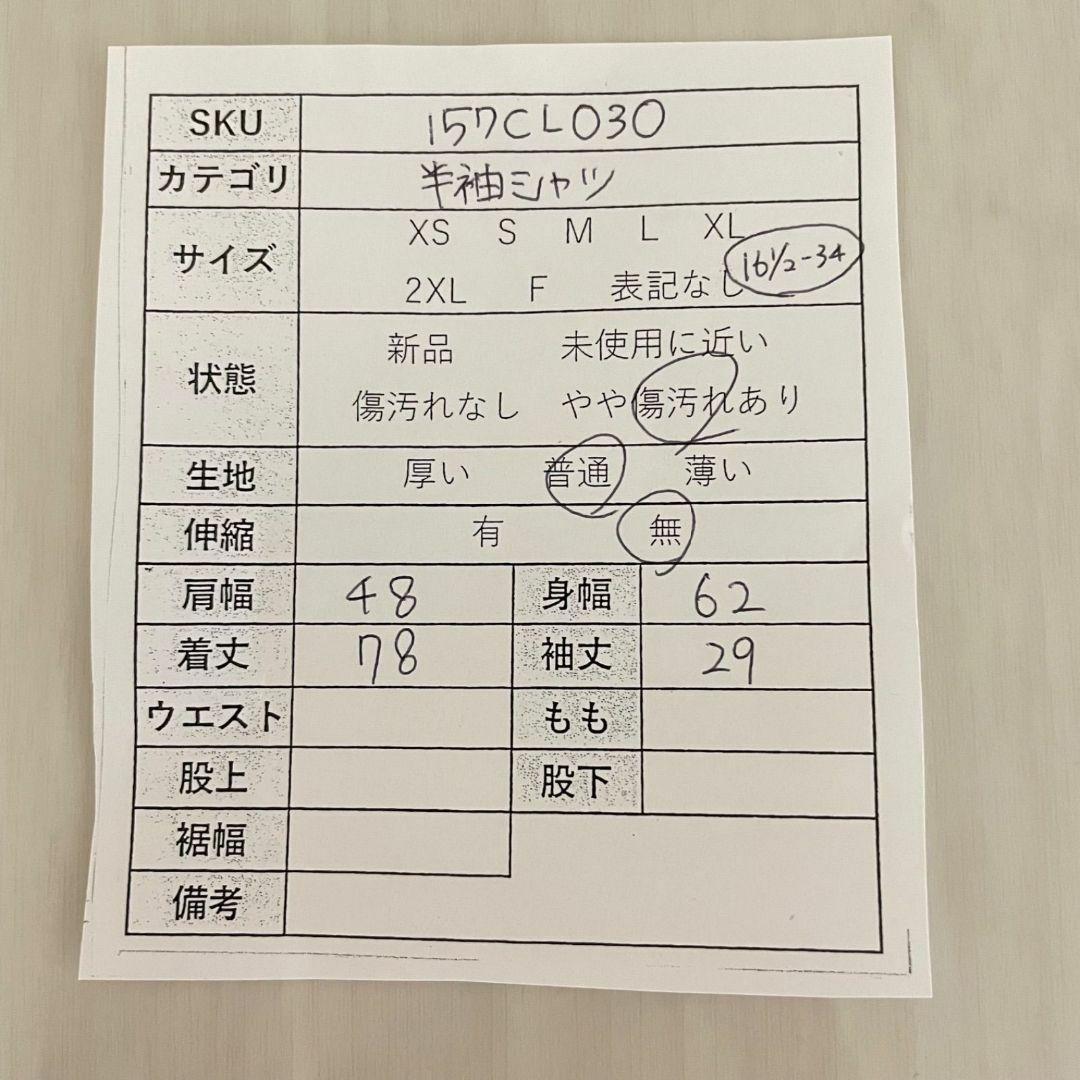 SKU 157CL030
カテゴリ 半袖シャツ
サイズ XS S M L XL
16 1/2-34
2XL F 表記なし
状態 新品 未使用に近い
傷汚れなし やや傷汚れあり
生地 厚い 普通 薄い
伸縮 有 無
肩幅 48 身幅 62
着丈 78 袖丈 29
ウエスト もも
股上 股下
裾幅
備考